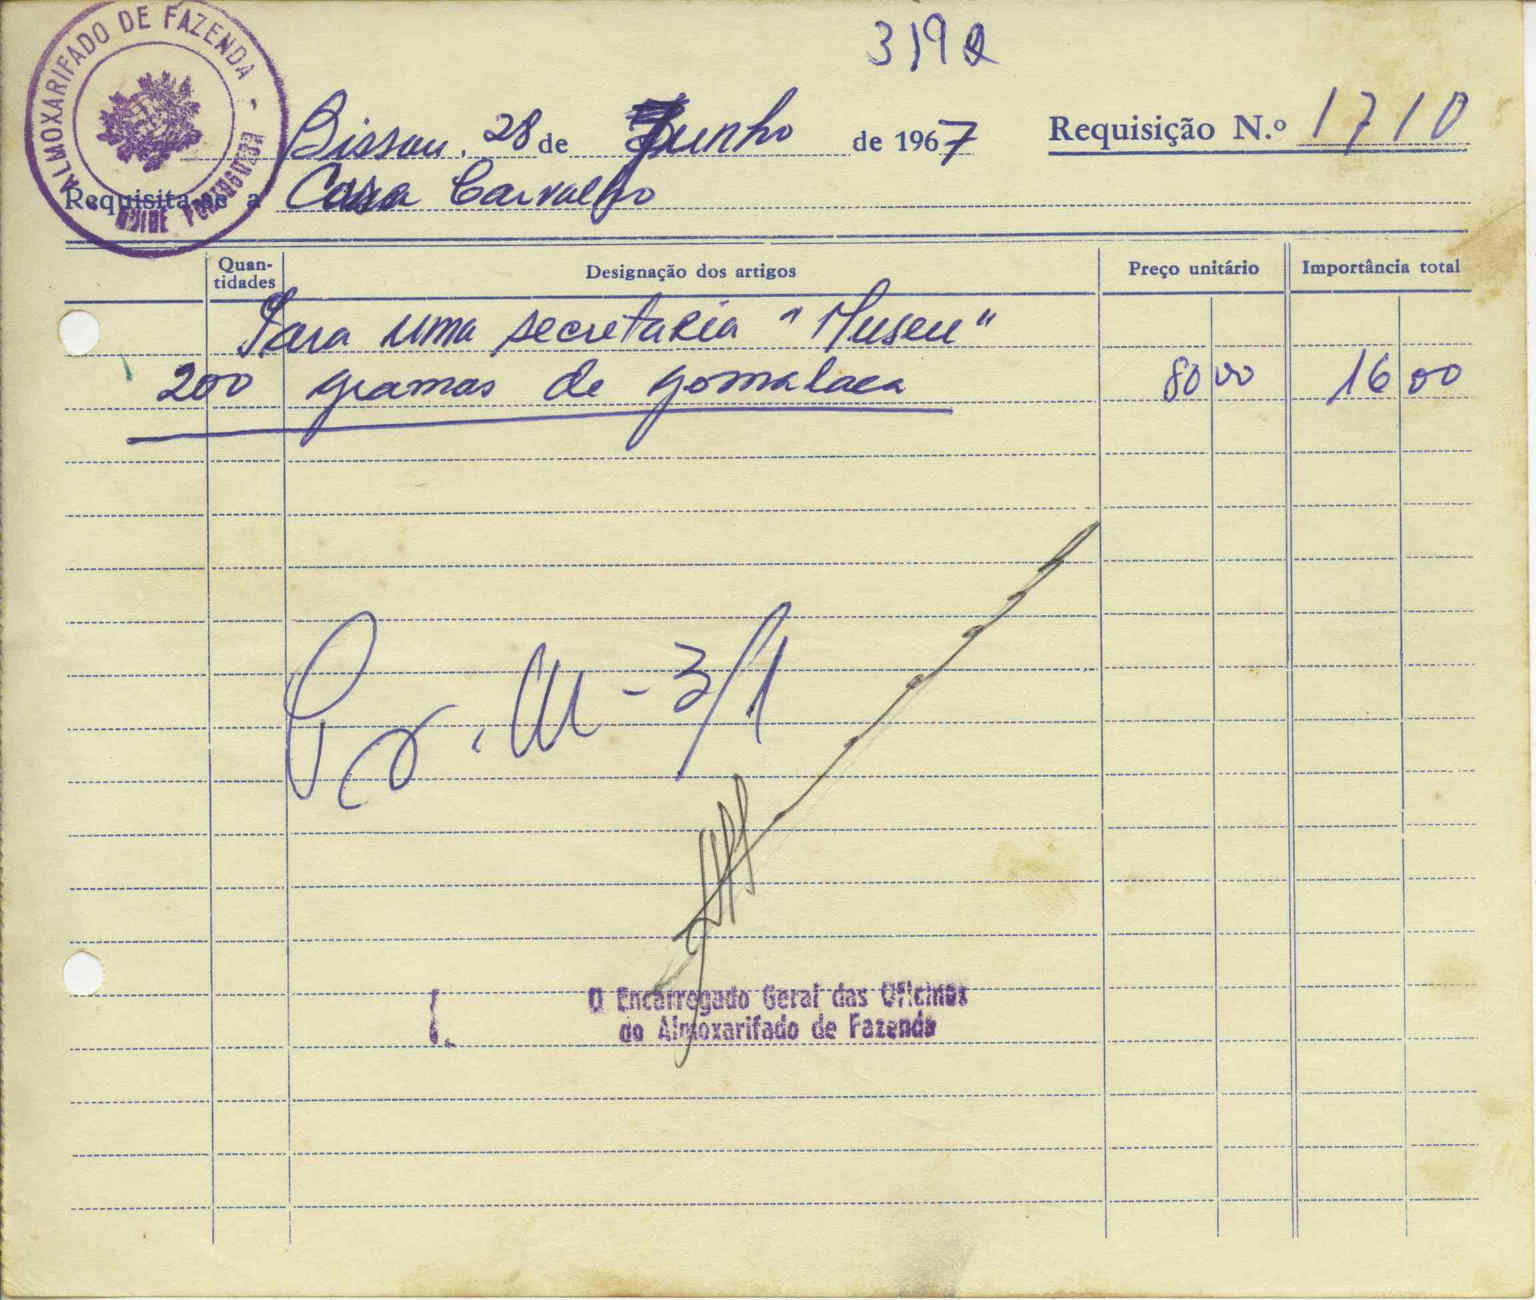 319
ALMOXARIFADO DE FAZENDA - REPUBLICA PORTUGUESA
Bissau, 28 de Junho de 1967 Requisição N.º 1710
Requisita-se a Casa Carvalho
Quan-
tidades Designação dos artigos Preço unitário Importância total
Para uma secretaria "Museu"
200 gramas de gomalaca 80 00 16 00
M-3/1
O Encarregado Geral das Oficinas
do Almoxarifado de Fazenda